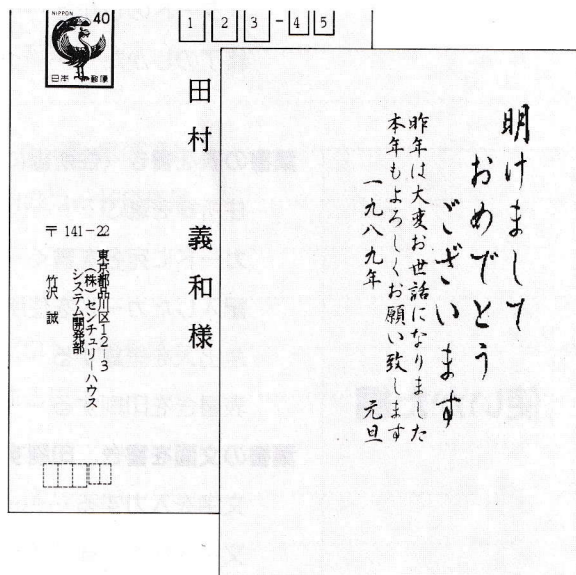 NIPPON
40
日本郵便
123-45
田村 義和様
〒141-22
東京都品川区12-3
(株)センチュリーハウス
システム開発部
竹沢 誠
明けまして
おめでとう
ございます
昨年は大変お世話になりまた
本年もよろしくお願い致します
一九八九年 元旦